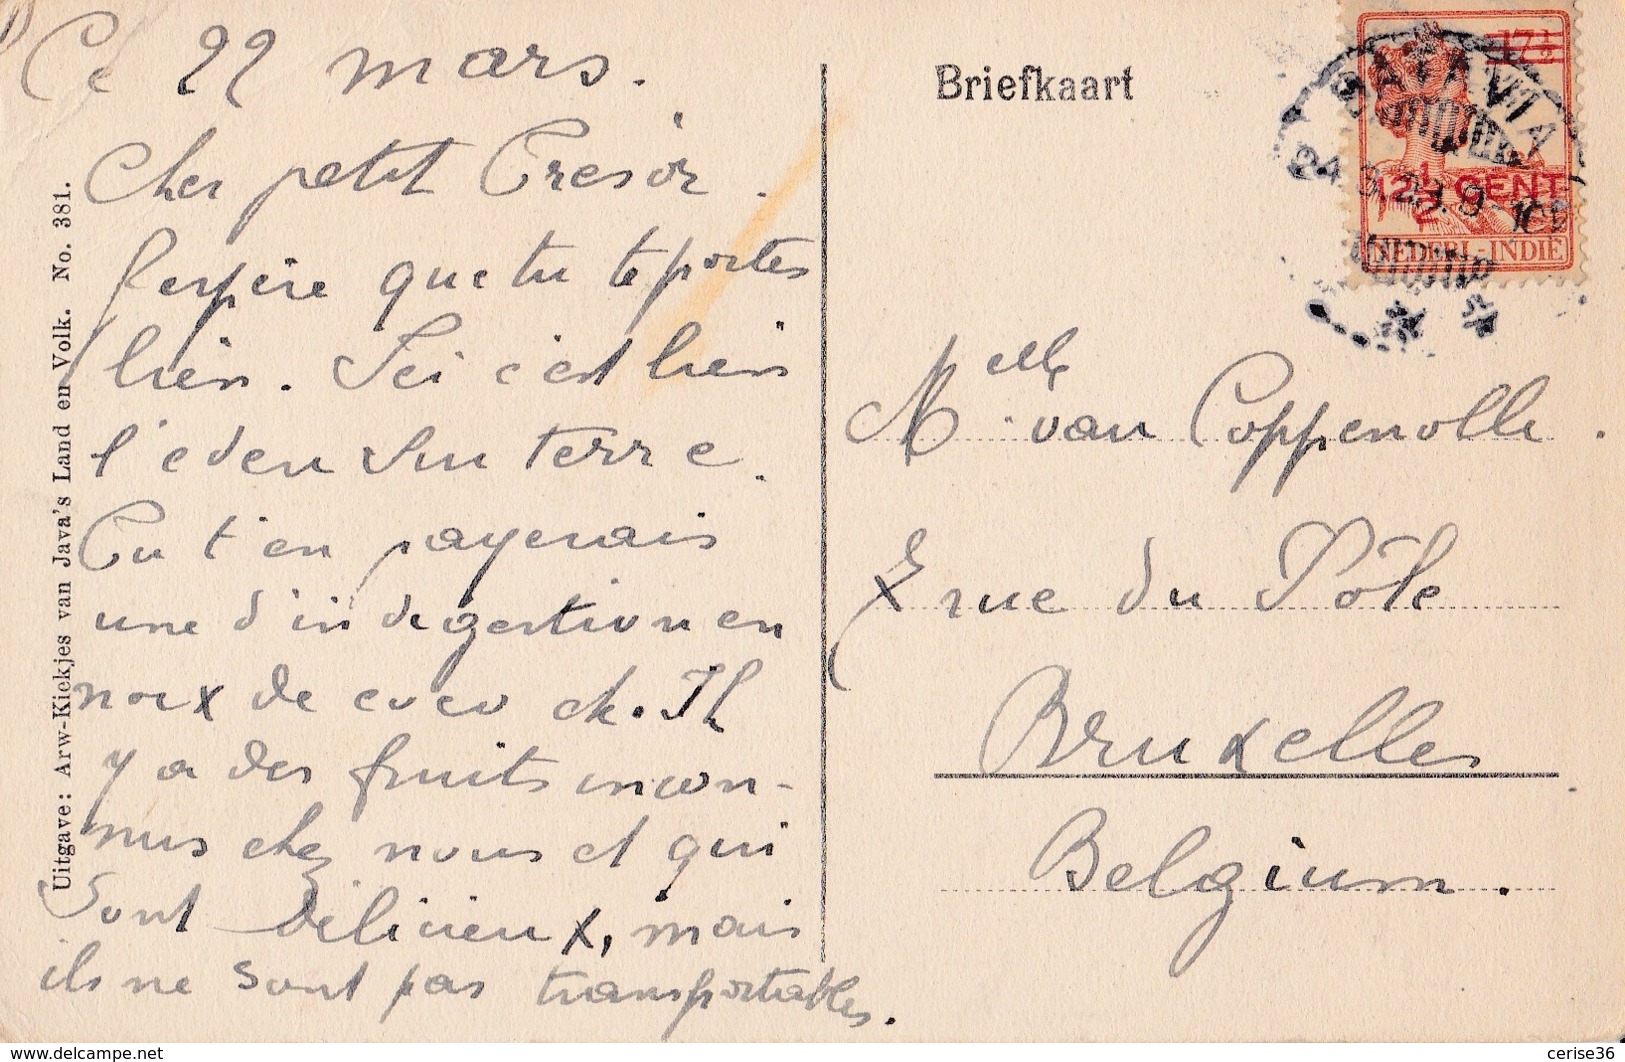 Ce 22 mars.
Cher petit Tresor.
J'espère que tu te portes
bien. Ici c'est bien
l'eden sur terre.
Tu t'en payerais
une d'indegestion en
noix de coco etc. Il
y a des fruits incon-
nus chez nous et qui
sont délicieux, mais
ils ne sont pas transportables.
Uitgave: Arw-Kiekjes van Java's Land en Volk. No. 381.
Briefkaart
17½
12½ CENT
NEDERL-INDIË
BATAVIA
24.3.23.9-10
Melle van Coppenolle.
rue du Pôle
Bruxelles
Belgium.
www.delcampe.net
cerise36